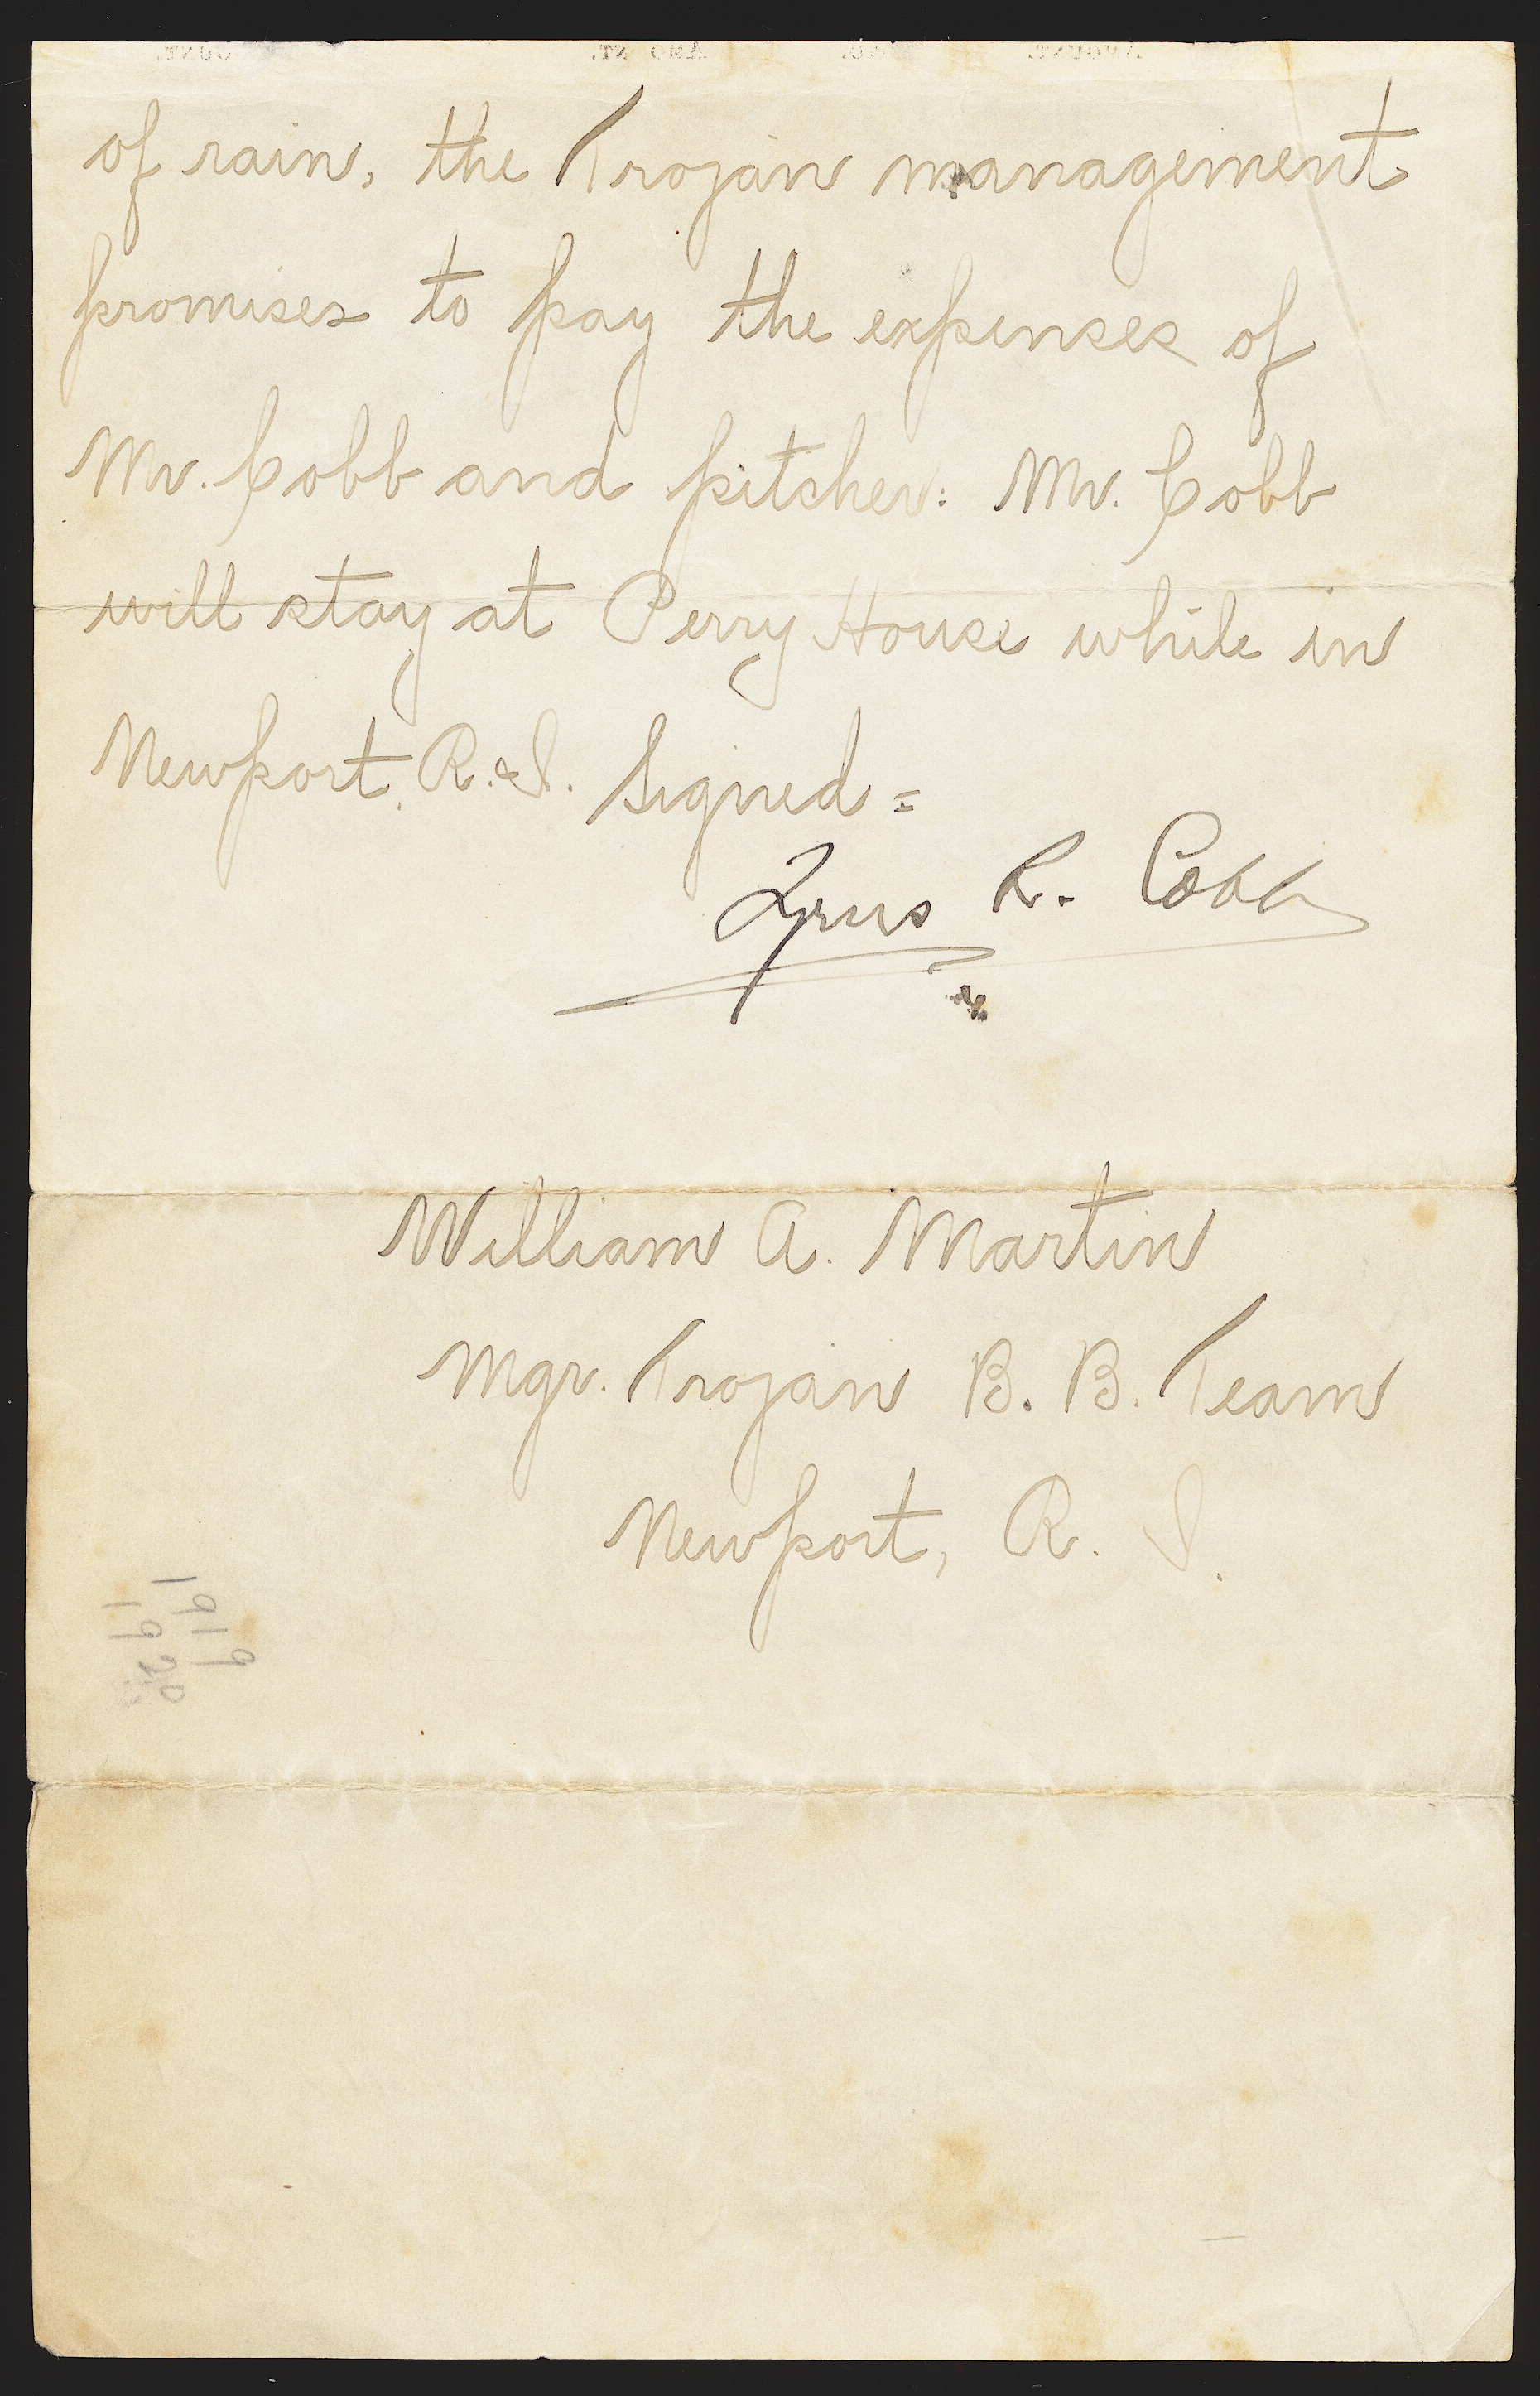 of rain, the Trojan management
promises to pay the expenses of
Mr. Cobb and pitcher: Mr. Cobb
will stay at Perry House while in
Newport, R. I. Signed =
Tyrus R. Cobb
William A. Martin
Mgr. Trojan B. B. Team
Newport, R. I.
1919
19